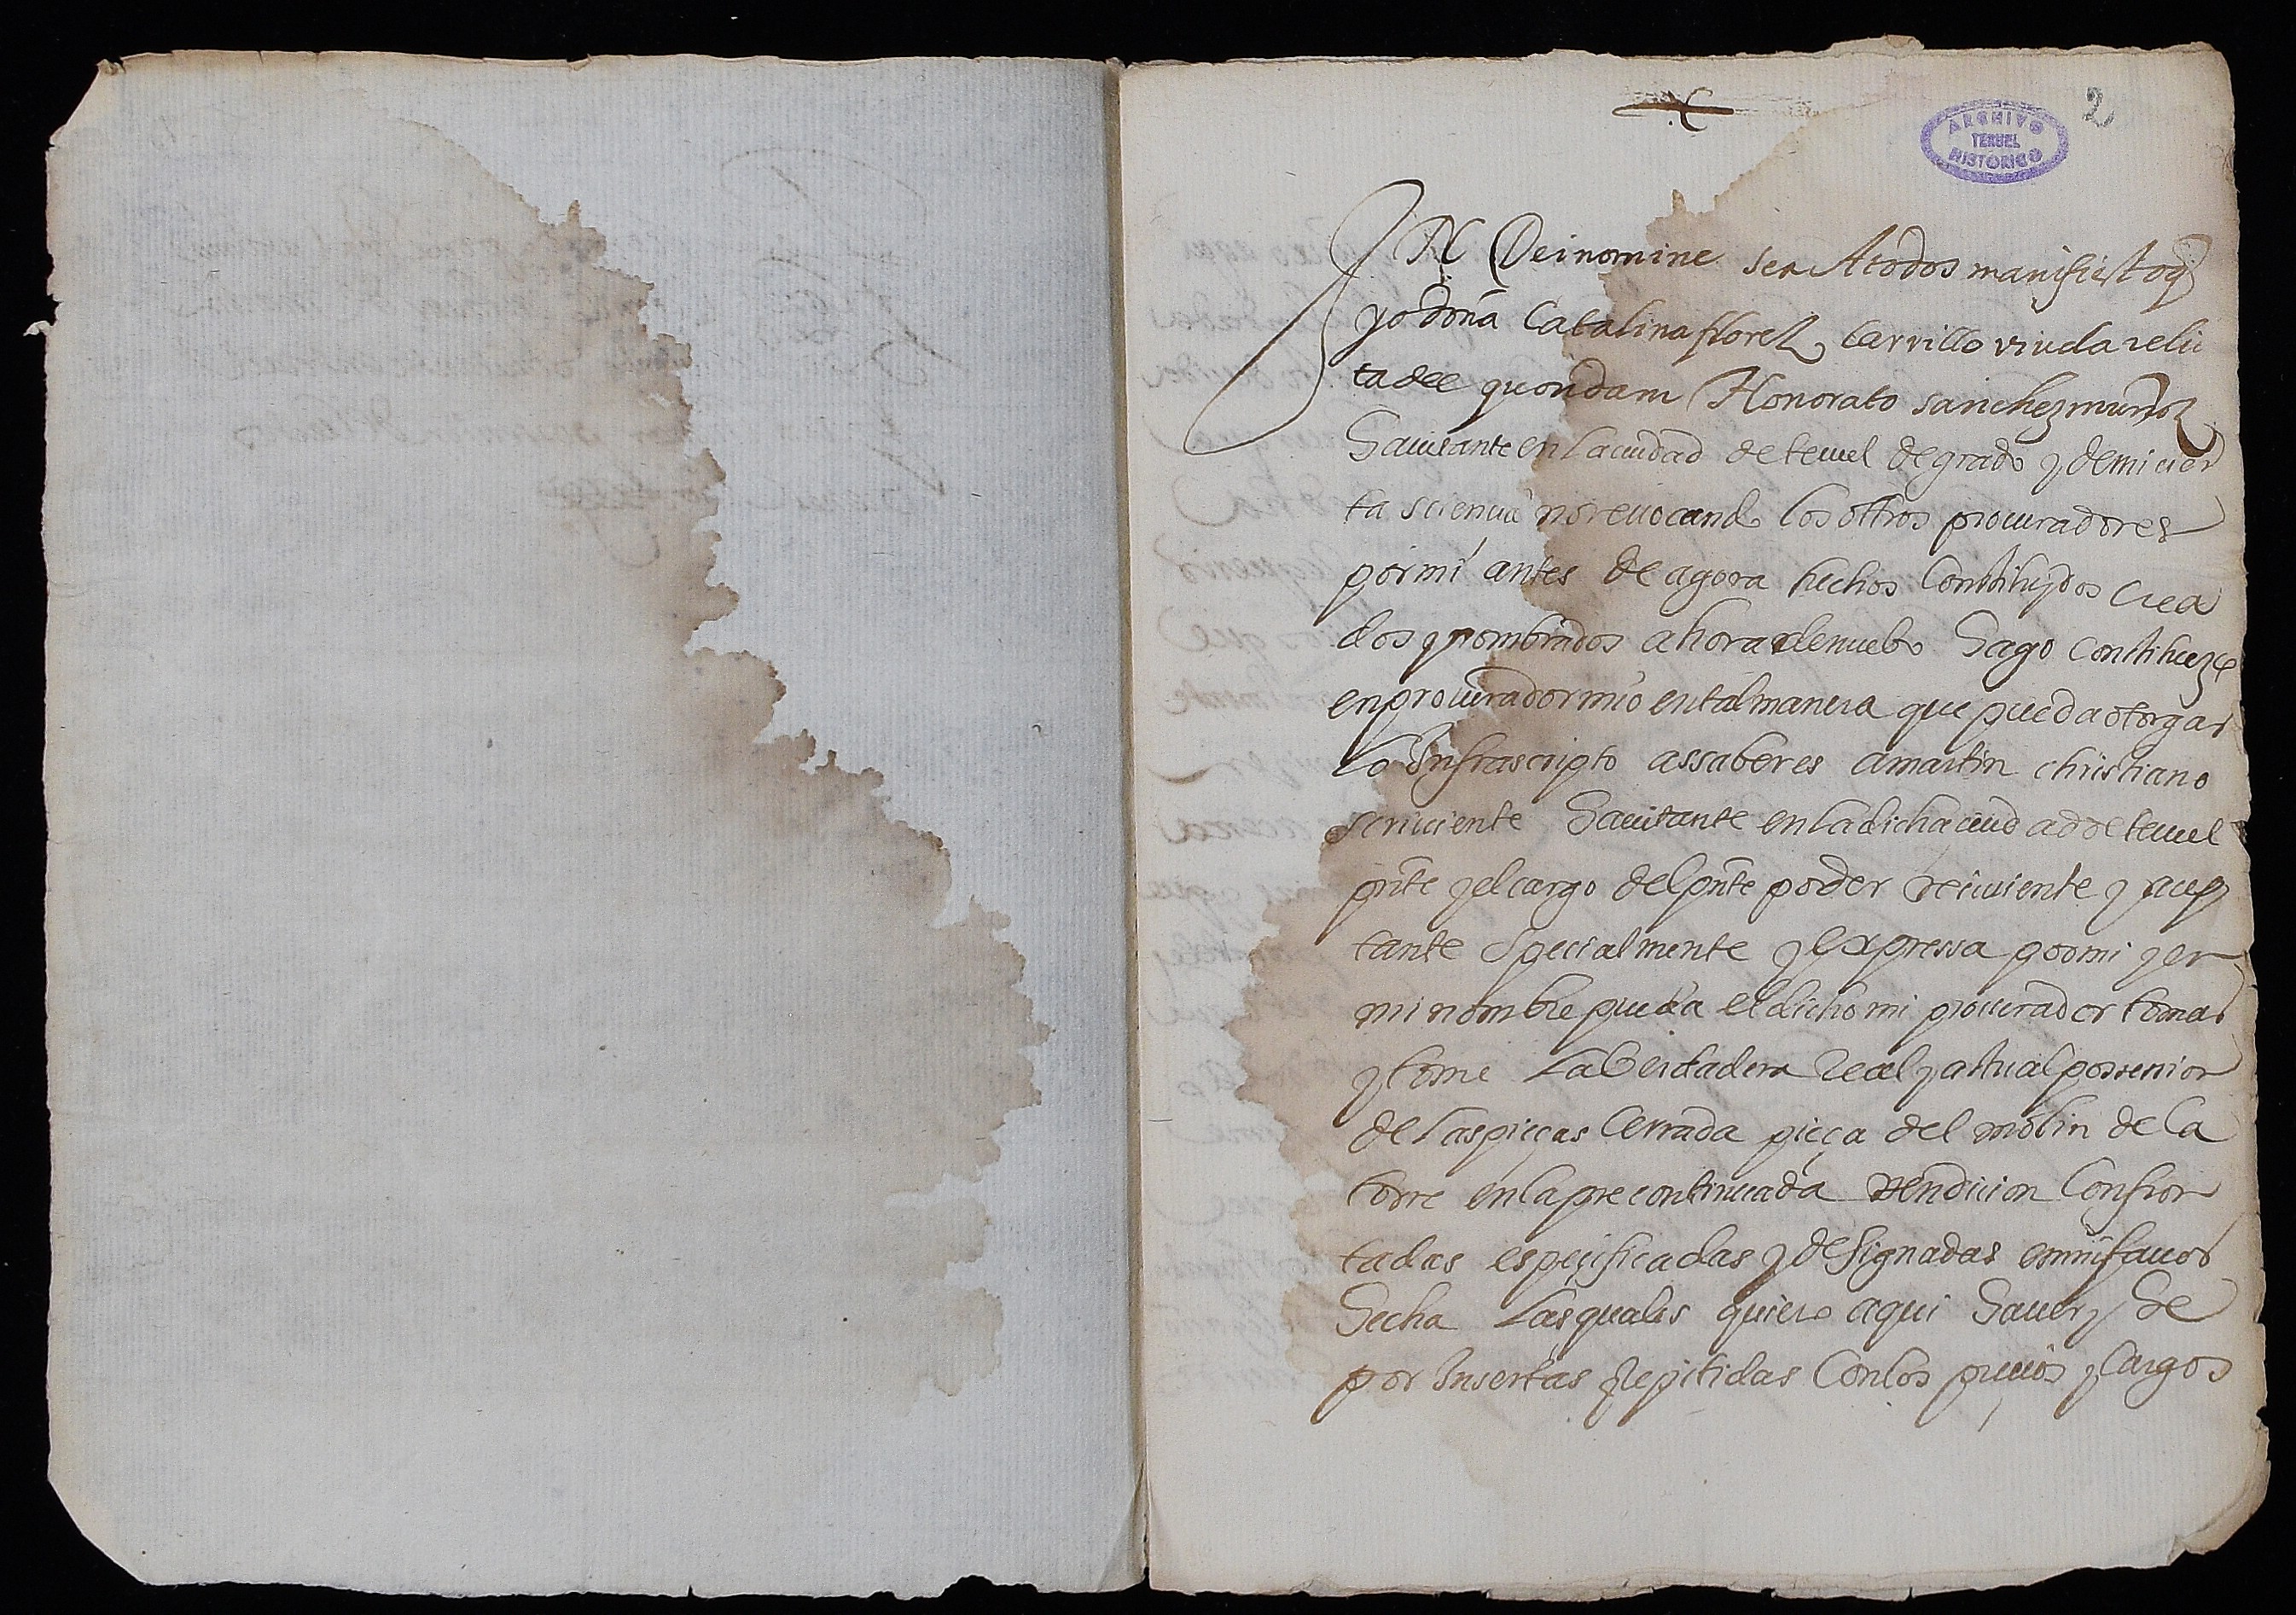 2
ARCHIVO
TERUEL
HISTORICO
IN Dei nomine sea Atodos manifiesto q
yo doña Catalina florez Carrillo viuda relic
ta del quondam Honorato sanchez muñoz
hauitante en la ciudad de teruel de grado y de mi cier
ta sciencia no reuocando los ottros procuradores
por mi antes de agora hechos Constituydos crea
dos y nombrados ahora de nuebo hago constituezco
en procurador mio en tal manera que pueda otorgar
lo Infrascripto assaber es a martin christiano
scriuiente hauitante en la dicha ciudad de teruel
pnte y el cargo del pnte poder reciuiente y acep
tante specialmente y expressa por mi y en
mi nombre pueda el dicho mi procurador tomar
y tome la Verdadera Real y actual possesion
de las pieças Cerrada pieça del molin de la
torre en la precontinuada vendicion Confron
tadas especificadas y designadas en mi fauor
hecha las quales quiero aqui hauer y he
por Insertas y repitidas Con los precios y Cargos